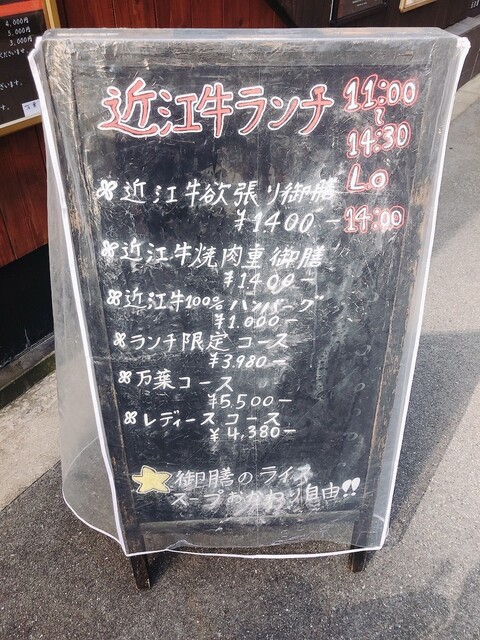 近江牛ランチ
11:00
~
14:30
L.o
14:00
近江牛欲張り御膳
¥1400-
近江牛焼肉重御膳
¥1400-
近江牛100%ハンバーグ
¥1.000-
ランチ限定コース
¥3.980-
万葉コース
¥5.500-
レディースコース
¥4,380-
御膳のライス
スープおかわり自由!!
4.000円
5.000円
3.000円